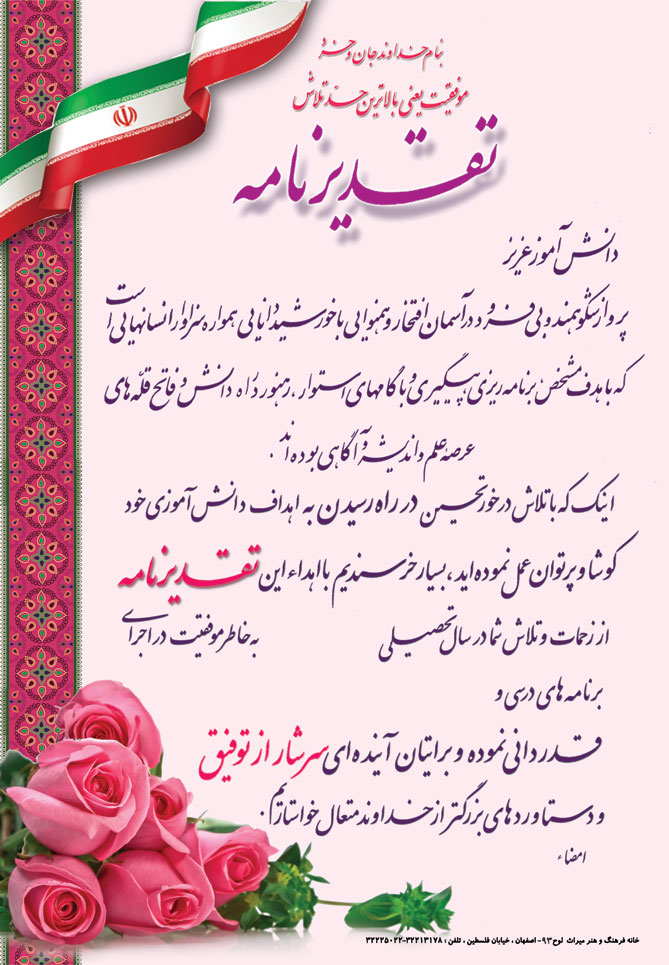 بنام خداوند جان و خرد
موفقیت یعنی بالاترین حد تلاش
تقدیرنامه
دانش آموز عزیز
پرواز شکوهمند و بی فرود در آسمان افتخار و همنوایی با خورشید دانایی همواره سزاوار انسانهایی است
که با هدف مشخص برنامه ریزی، پیگیری و با گامهای استوار، رهنورد راه دانش و فاتح قله های
عرصه علم و اندیشه و آگاهی بوده اند.
اینک که با تلاش درخور تحسین در راه رسیدن به اهداف دانش آموزی خود
کوشا و پرتوان عمل نموده اید، بسیار خرسندیم با اهداء این تقدیرنامه
از زحمات و تلاش شما در سال تحصیلی به خاطر موفقیت در اجرای
برنامه های درسی و
قدردانی نموده و برایتان آینده ای سرشار از توفیق
و دستاوردهای بزرگتر از خداوند متعال خواستاریم.
امضاء
خانه فرهنگ و هنر میراث لوح ۹۳- اصفهان ، خیابان فلسطین ، تلفن : ۳۲۲۱۳۱۷۸-۳۲۲۲۵۰۲۲